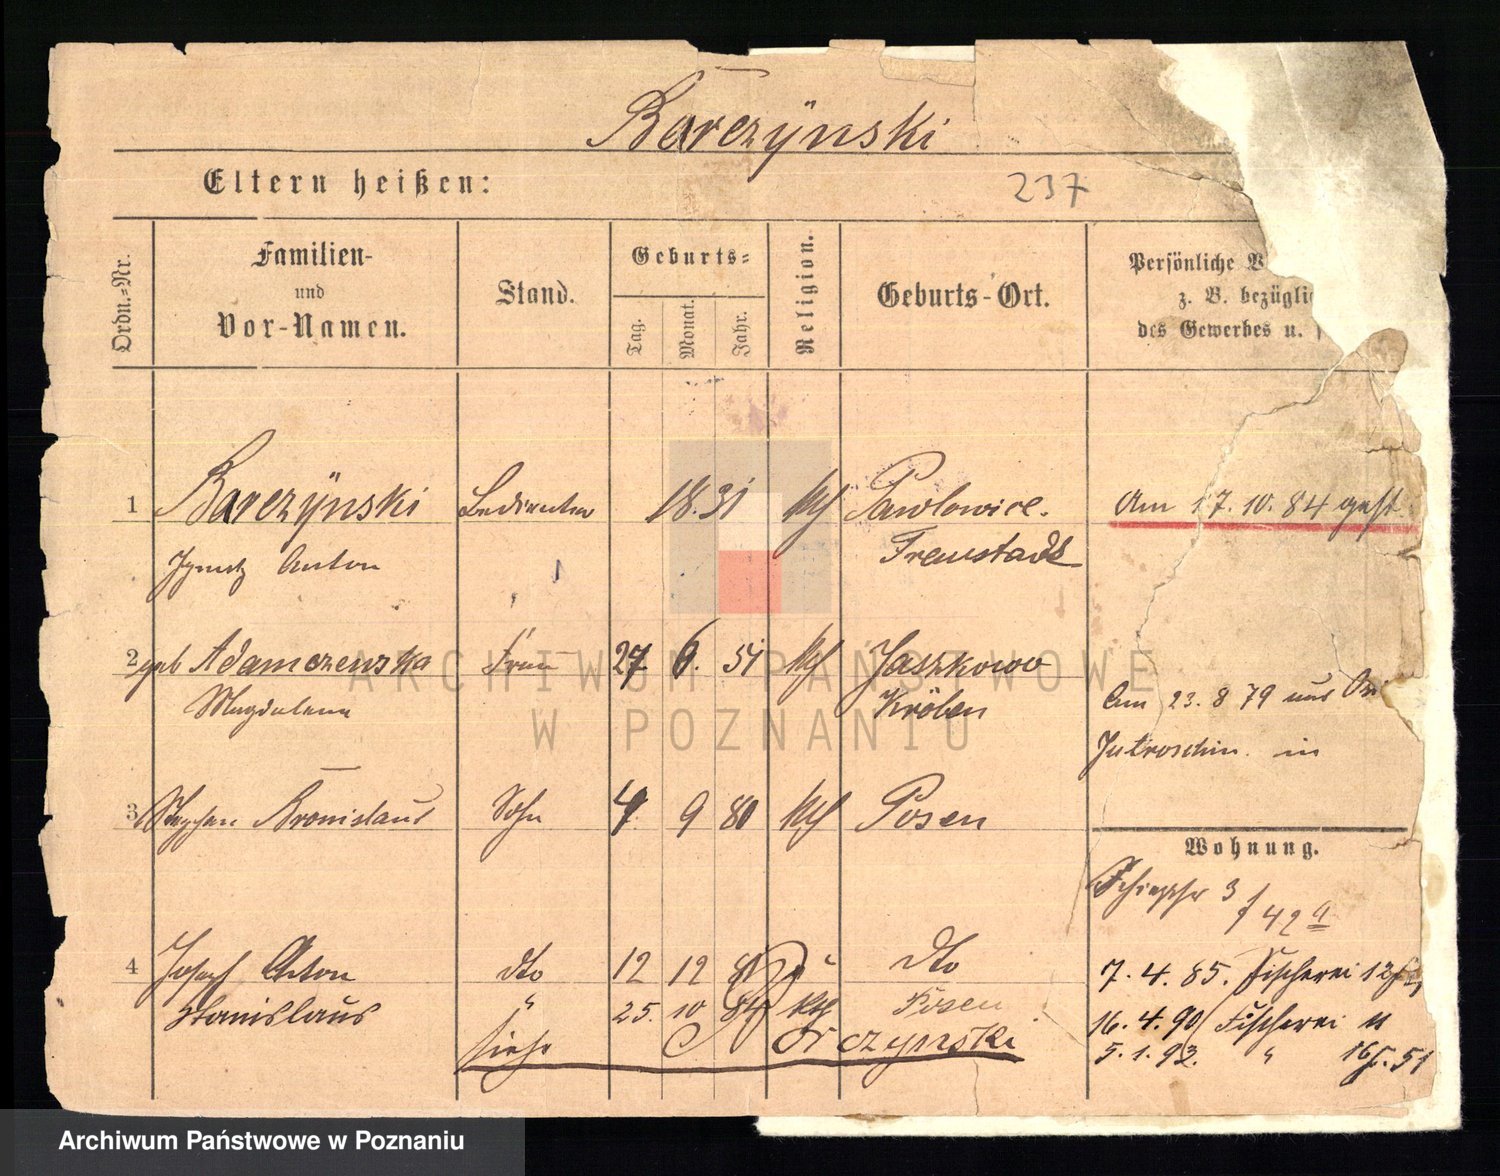 Barczÿnski
Eltern heißen:
237
Ordn.-Nr.
Familien-
und
Vor-Namen.
Stand.
Geburts-
Tag.
Monat.
Jahr.
Religion.
Geburts-Ort.
Persönliche
z. B. bezügli
des Gewerbes u.
1 Barczÿnski Bedienter 18.31 kth Pawlowice. Am 17.10.84 gest
Ignatz Anton Fraustadt
2 geb Adamczewska Frau 27 6. 51 kth Jaszkowo
Magdalena Kröben
Am 23.8 79 aus
Jutroschin in
3 Stephan Bronislaus Sohn 4 9 80 kth Posen
Wohnung.
Schiepstr 3
42 a
4 Joseph Anton dto 12 12 dto
7.4.85. Fischerei 12
Stanislaus " 25. 10 84 kth Posen
16.4.90 Fischerei 11
siehe Orczynski
5.1.93. " 16
ARCHIWUM PAŃSTWOWE
W POZNANIU
Archiwum Państwowe w Poznaniu